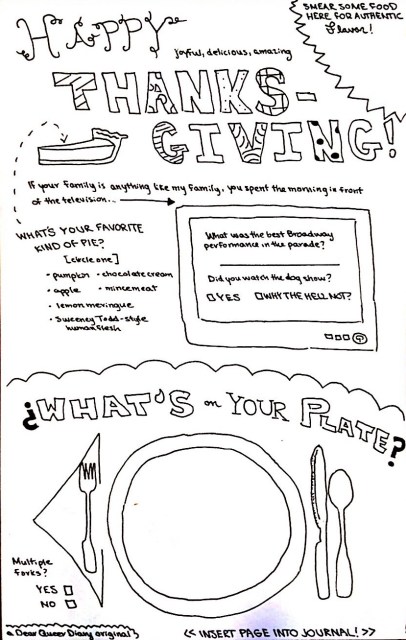 HAPPY
SMEAR SOME FOOD
HERE FOR AUTHENTIC
Flavor!
joyful, delicious, amazing
THANKS-
GIVING!
If your family is anything like my family, you spent the morning in front
of the television...
WHAT'S YOUR FAVORITE
KIND OF PIE?
[circle one]
• pumpkin • chocolate cream
• apple • mincemeat
• lemon meringue
• Sweeney Todd-style
human flesh
What was the best Broadway
performance in the parade?
Did you watch the dog show?
YES WHY THE HELL NOT?
¿WHAT'S on YOUR PLATE?
Multiple
forks?
YES
NO
a Dear Queer Diary original
<< INSERT PAGE INTO JOURNAL! >>